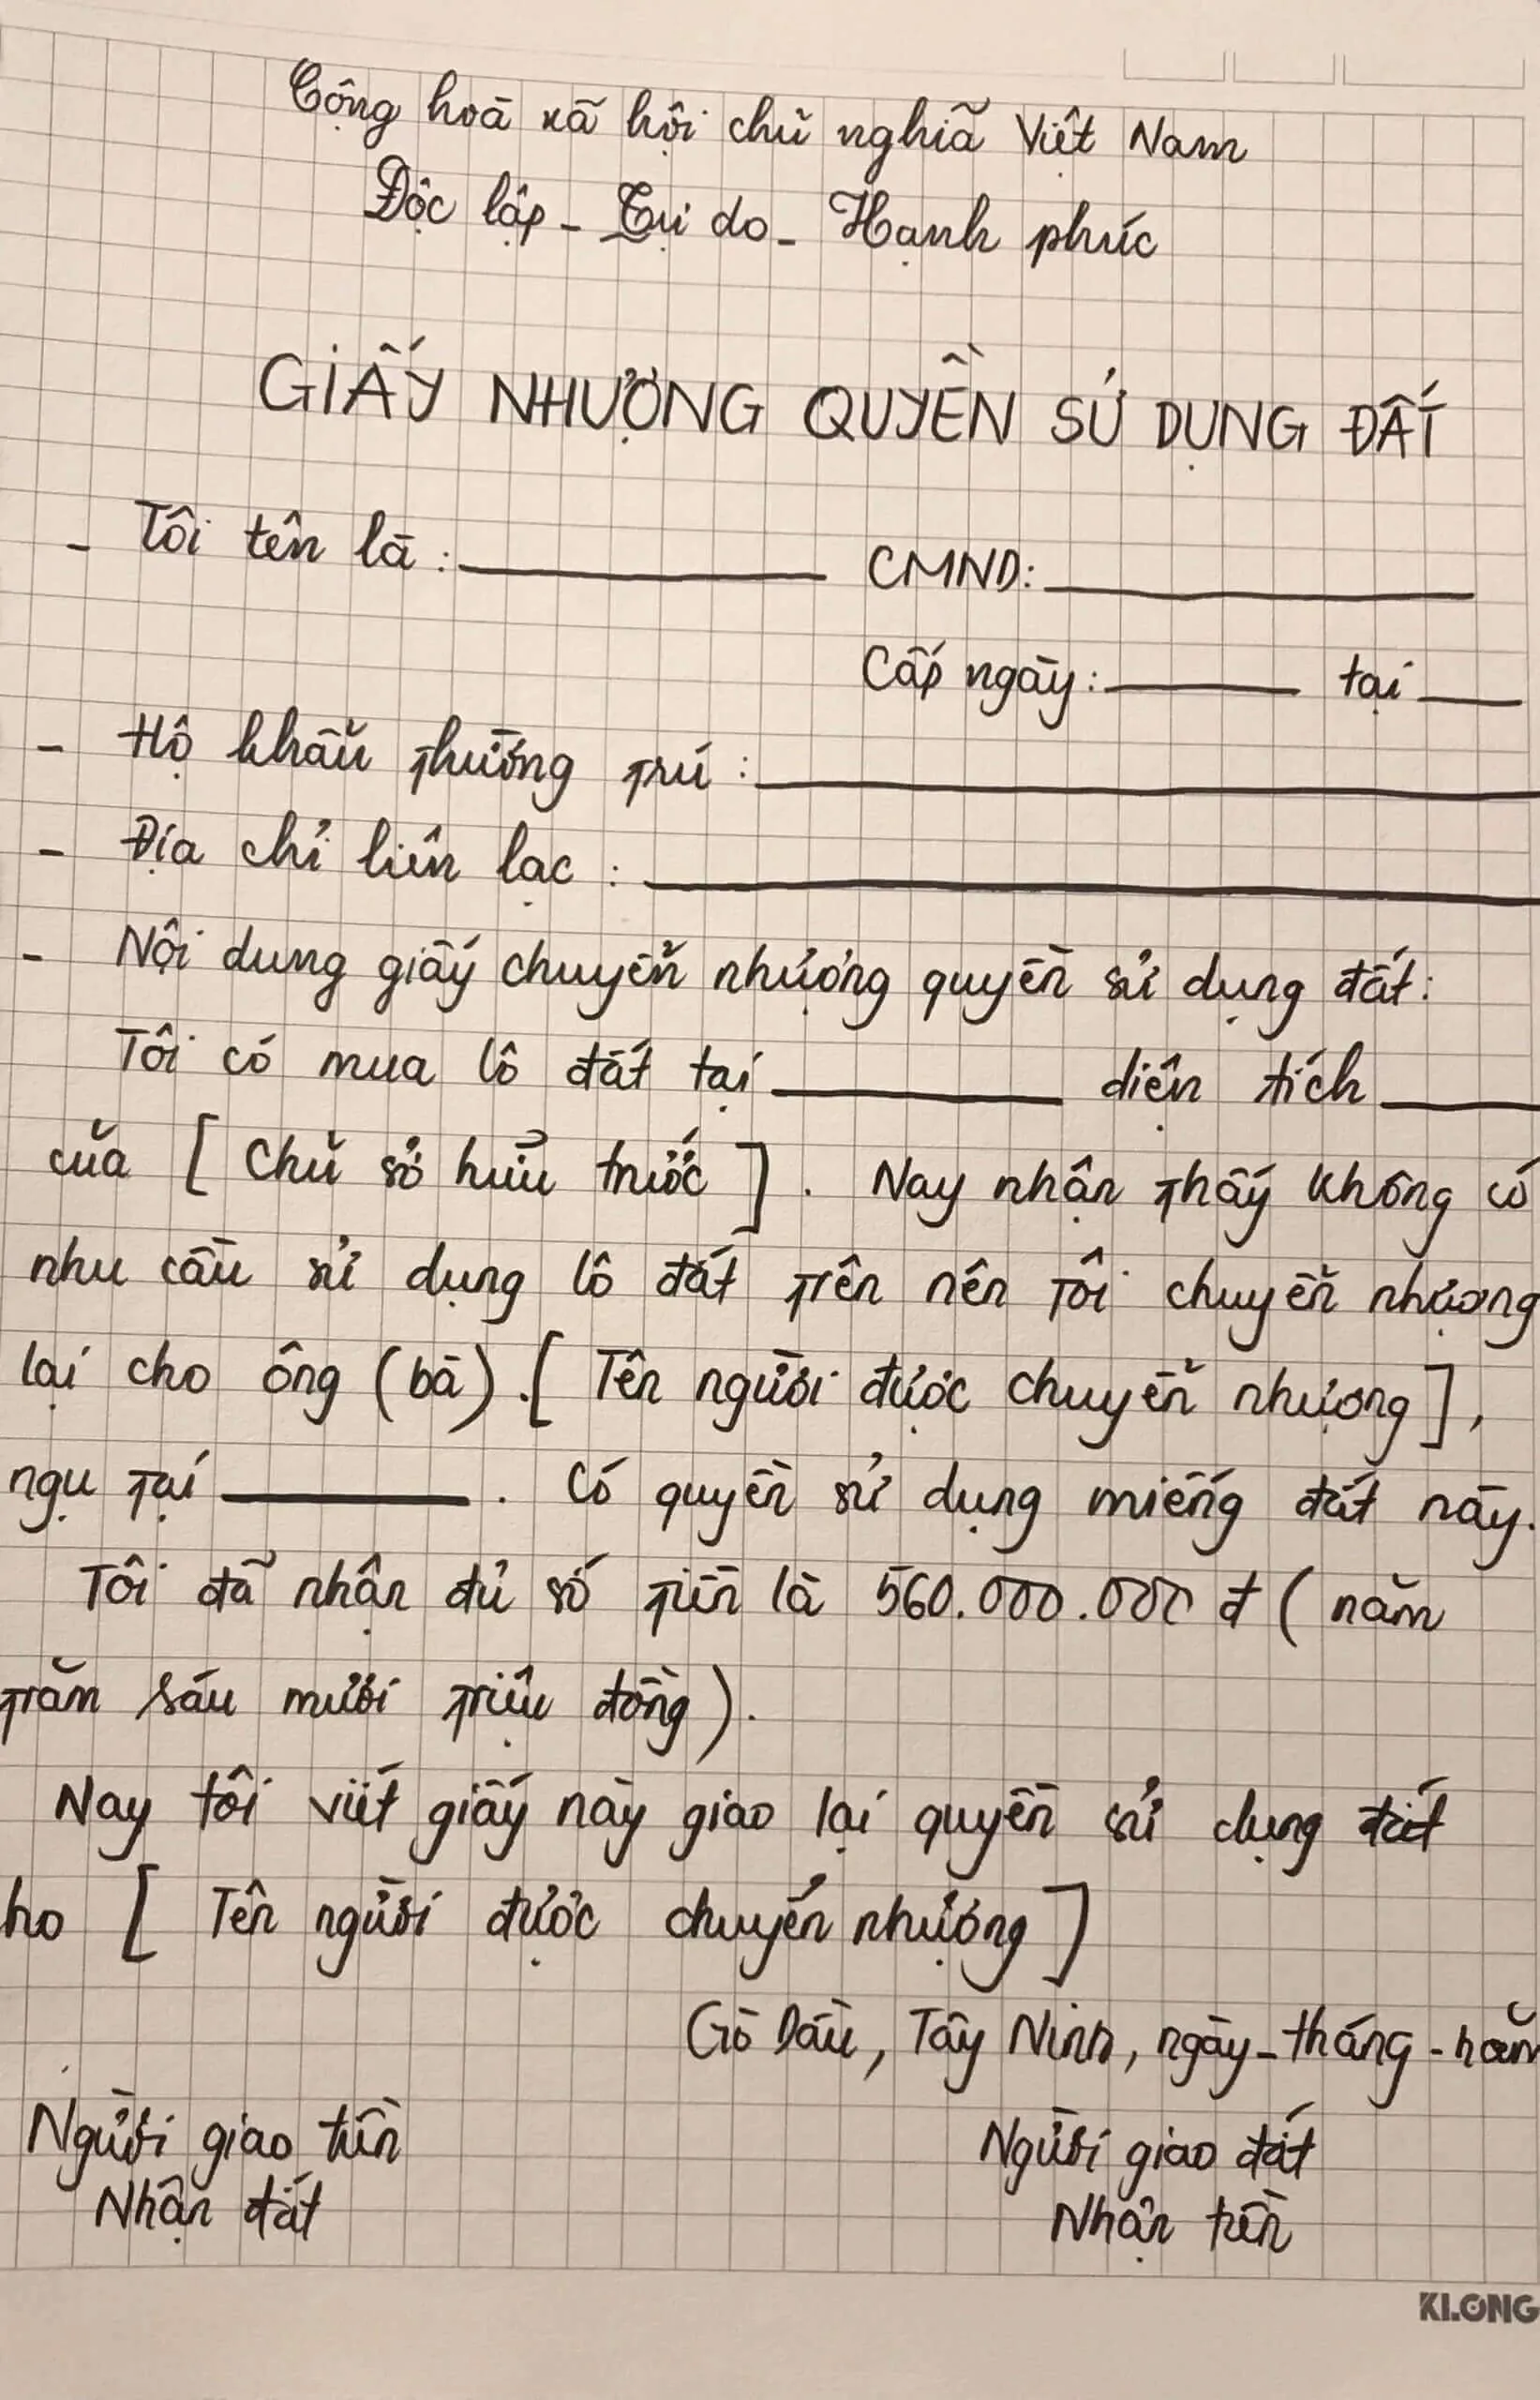 Cộng hoà xã hội chủ nghĩa Việt Nam
Độc lập - Tự do - Hạnh phúc
GIẤY NHƯỢNG QUYỀN SỬ DỤNG ĐẤT
- Tôi tên là: ________ CMND: ________
Cấp ngày: ____ tại ____
- Hộ khẩu thường trú: ________
- Địa chỉ liên lạc: ________
- Nội dung giấy chuyển nhượng quyền sử dụng đất:
Tôi có mua lô đất tại ________ diện tích ____
của [Chủ sở hữu trước]. Nay nhận thấy không có
nhu cầu sử dụng lô đất trên nên tôi chuyển nhượng
lại cho ông (bà).[Tên người được chuyển nhượng],
ngụ tại ________. Có quyền sử dụng miếng đất này.
Tôi đã nhận đủ số tiền là 560.000.000 đ (năm
trăm sáu mươi triệu đồng).
Nay tôi viết giấy này giao lại quyền sử dụng đất
ho [Tên người được chuyển nhượng]
Gò Dầu, Tây Ninh, ngày-tháng-năm
Người giao tiền Người giao đất
Nhận đất Nhận tiền
KLONG